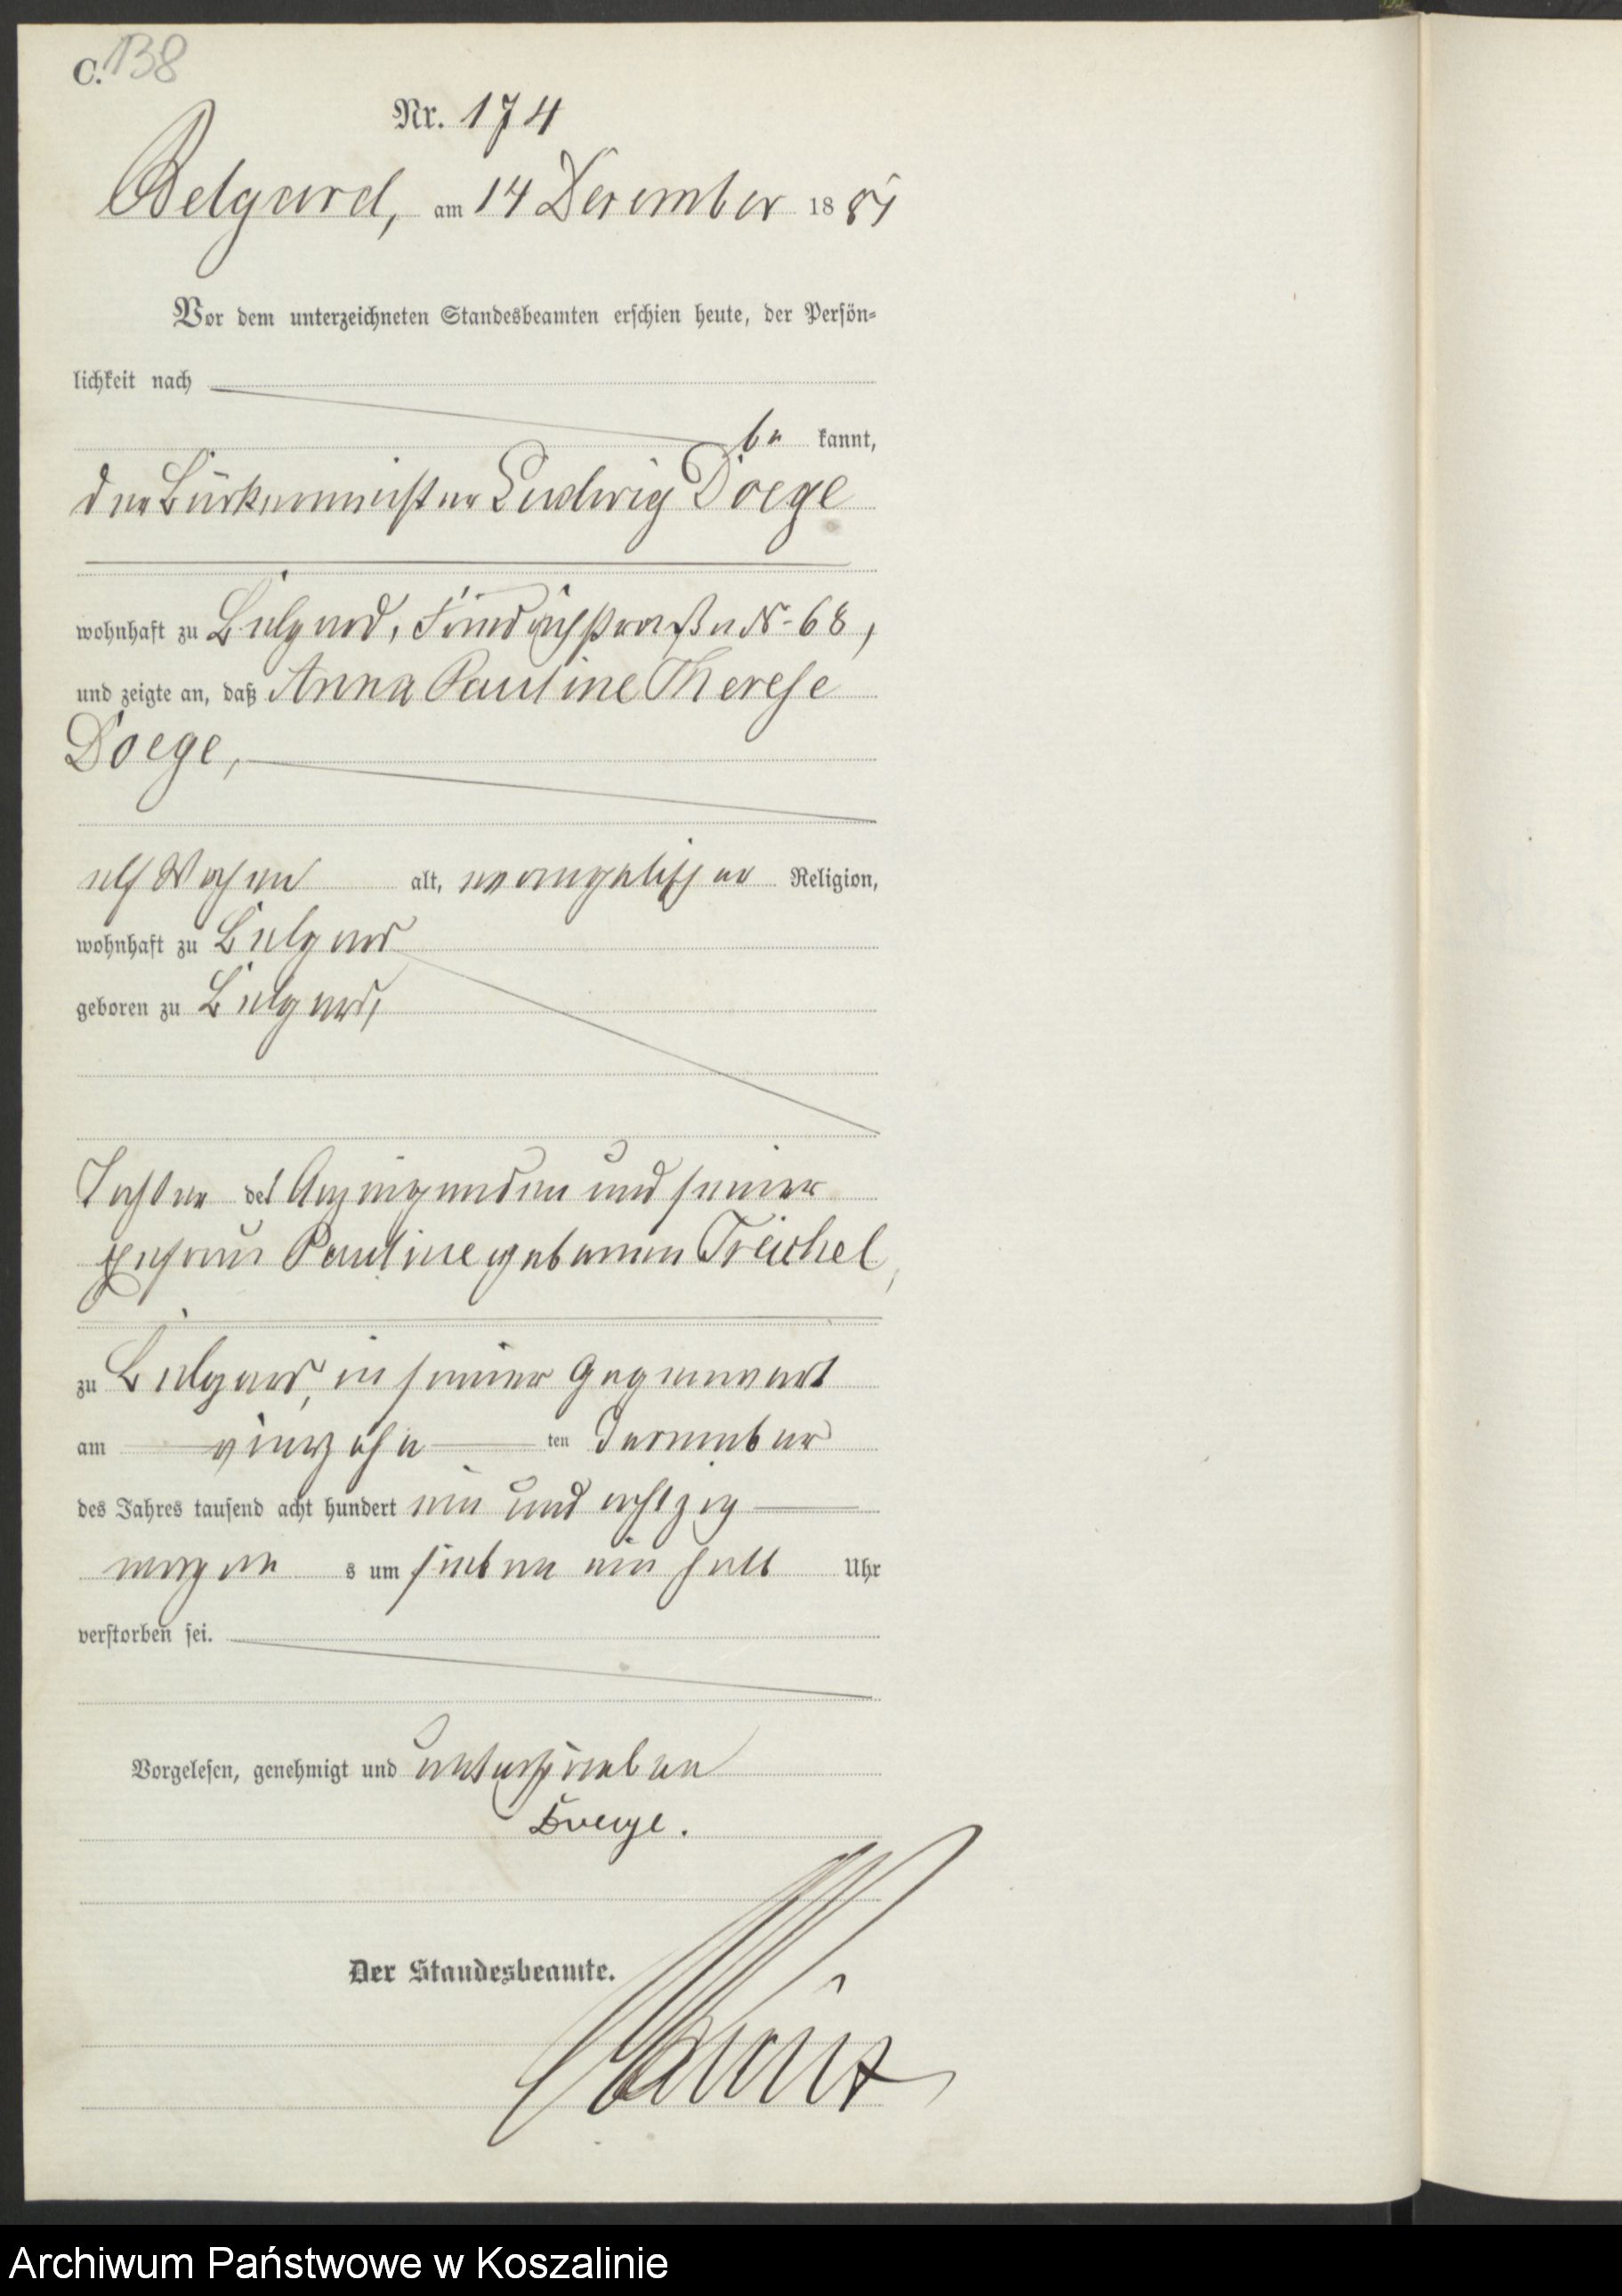 C. 138
Nr. 174
Belgard, am 14 Dezember 1881
Vor dem unterzeichneten Standesbeamten erschien heute, der Persön-
lichkeit nach
be kannt,
der Bäckermeister Ludwig Doege
wohnhaft zu Belgard, Friedrichstraße N. 68,
und zeigte an, daß Anna Pauline Therese
Doege,
elf Wochen alt, evangelischer Religion,
wohnhaft zu Belgard
geboren zu Belgard,
Tochter des Anzeigenden und seiner
Ehefrau Pauline geborenen Treichel,
zu Belgard, in seiner Gegenwart
am vierzehn ten Dezember
des Jahres tausend acht hundert ein und achtzig
morgen s um sieben ein halb Uhr
verstorben sei.
Vorgelesen, genehmigt und unterschrieben
Doege.
Der Standesbeamte.
Archiwum Państwowe w Koszalinie